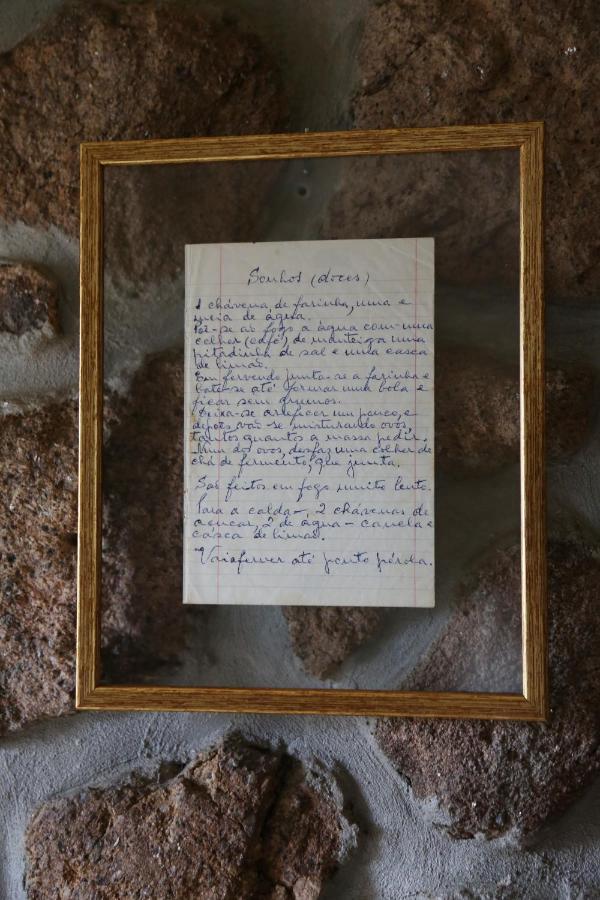 Sonhos (doces)
1 chávena, de farinha, uma e
meia de água.
Põe-se ao fogo a água com uma
colher (café) de manteiga uma
pitadinha de sal e uma casca
de limão.
Em fervendo junta-se a farinha e
bate-se até formar uma bola e
ficar sem grumos.
Deixa-se arrefecer um pouco, e
depois vão-se misturando ovos,
tantos quantos a massa pedir.
Num dos ovos, desfaz uma colher de
chá de fermento, que junta.
São feitos em fogo muito lento.
Para a calda-, 2 chávenas de
açucar, 2 de água - canela e
casca de limão.
Vai a ferver até ponto pérola.